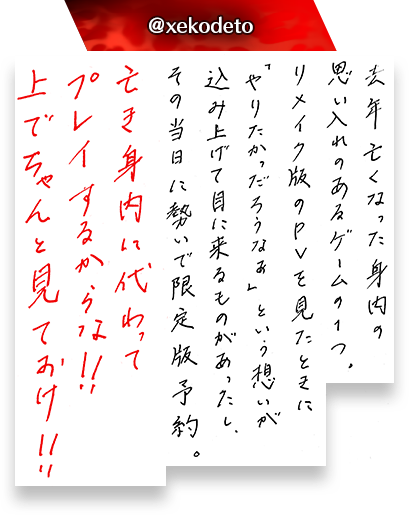 @xekodeto
去年亡くなった身内の
思い入れのあるゲームの1つ。
リメイク版のPVを見たときに
「やりたかっだろうなぁ」という想いが
込み上げて目に来るものがあったし、
その当日に勢いで限定版予約。
亡き身内に代わって
プレイするからな!!
上でちゃんと見ておけ!!